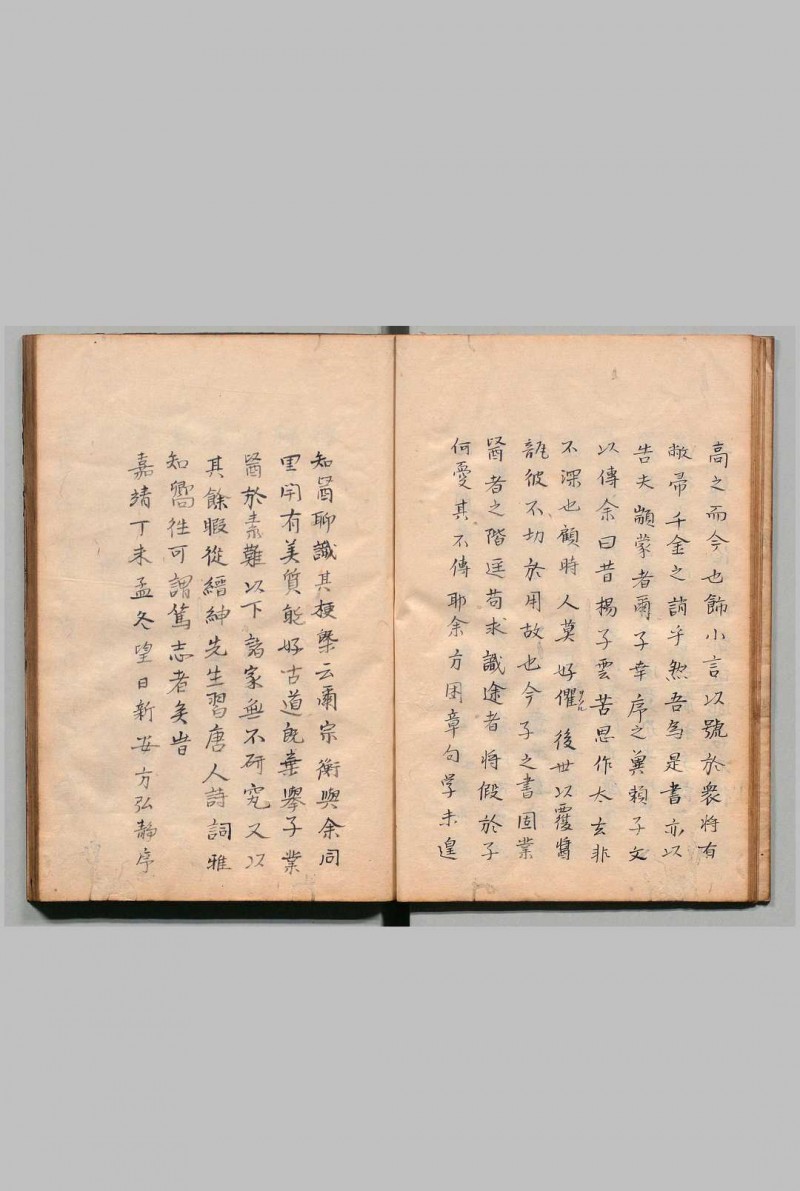 高之而今也飾小言以號於衆將有
敝帚千金之誚乎然吾為是書亦以
告夫顓蒙者爾子幸序之兾賴子文
以傳余曰昔楊子雲苦思作太玄非
不深也顧時人莫好懼後世以覆醬
瓿彼不切於用故也今子之書固業
醫者之階庭苟求識途者將假於子
何憂其不傳耶余方困章句学未遑
知醫聊識其梗槩云爾宗衡與余同
里閈有美質能好古道旣棄舉子業
醫於素難以下諸家無不研究又以
其餘暇從縉紳先生習唐人詩詞雅
知嚮徃可謂篤志者矣旹
嘉靖丁未孟冬望日新安方弘静序